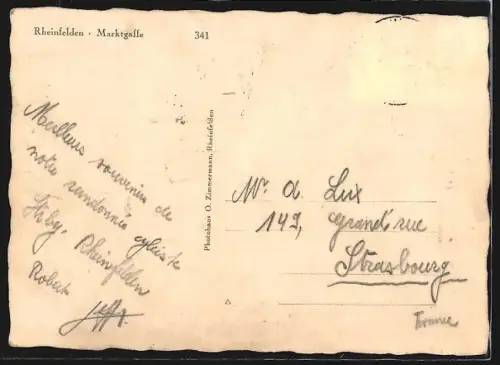 Rheinfelden · Marktgasse 341
Meilleurs souvenirs de
notre randonnée cycliste
Rheinfelden
Robert
Photohaus O. Zimmermann, Rheinfelden
Mr. A Lux
149, grand'rue
Strasbourg
France